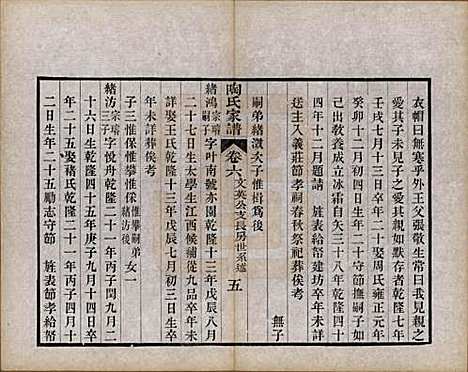 衣帽曰無寒乎外王父張敬生常曰我見親之
愛其子未見子之愛其親如默存者乾隆七年
壬戌七月十三日卒年二十娶周氏雍正元年
癸卯十二月二十一日生卒年未詳守節撫嗣子如
己出教養成立冰霜自矢三十八年乾隆四十
四年十二月題請　旌表給帑建坊卒年未詳
主入義莊節孝祠春秋祭祀葬俟考　　無子
嗣弟緒澂次子惟楫爲後
陶氏家譜　卷六　文英公支長房世系述　五
緒鴻　宗璹嗣子　字叶南號亦園乾隆十三年戊辰八月
二十七日生太學生江西候補從九品卒年未
詳娶王氏乾隆十三年戊辰七月初三日生卒
年未詳葬俟考
子三惟保惟攀惟楫　惟攀嗣弟緒汸後　女一
緒汸　宗璹三子　字悅舟乾隆二十一年丙子閏九月二
十六日生乾隆四十五年庚子九月十四日卒
年二十五娶褚氏乾隆二十一年丙子四月十
二日生年二十五勵志守節　旌表節孝給帑